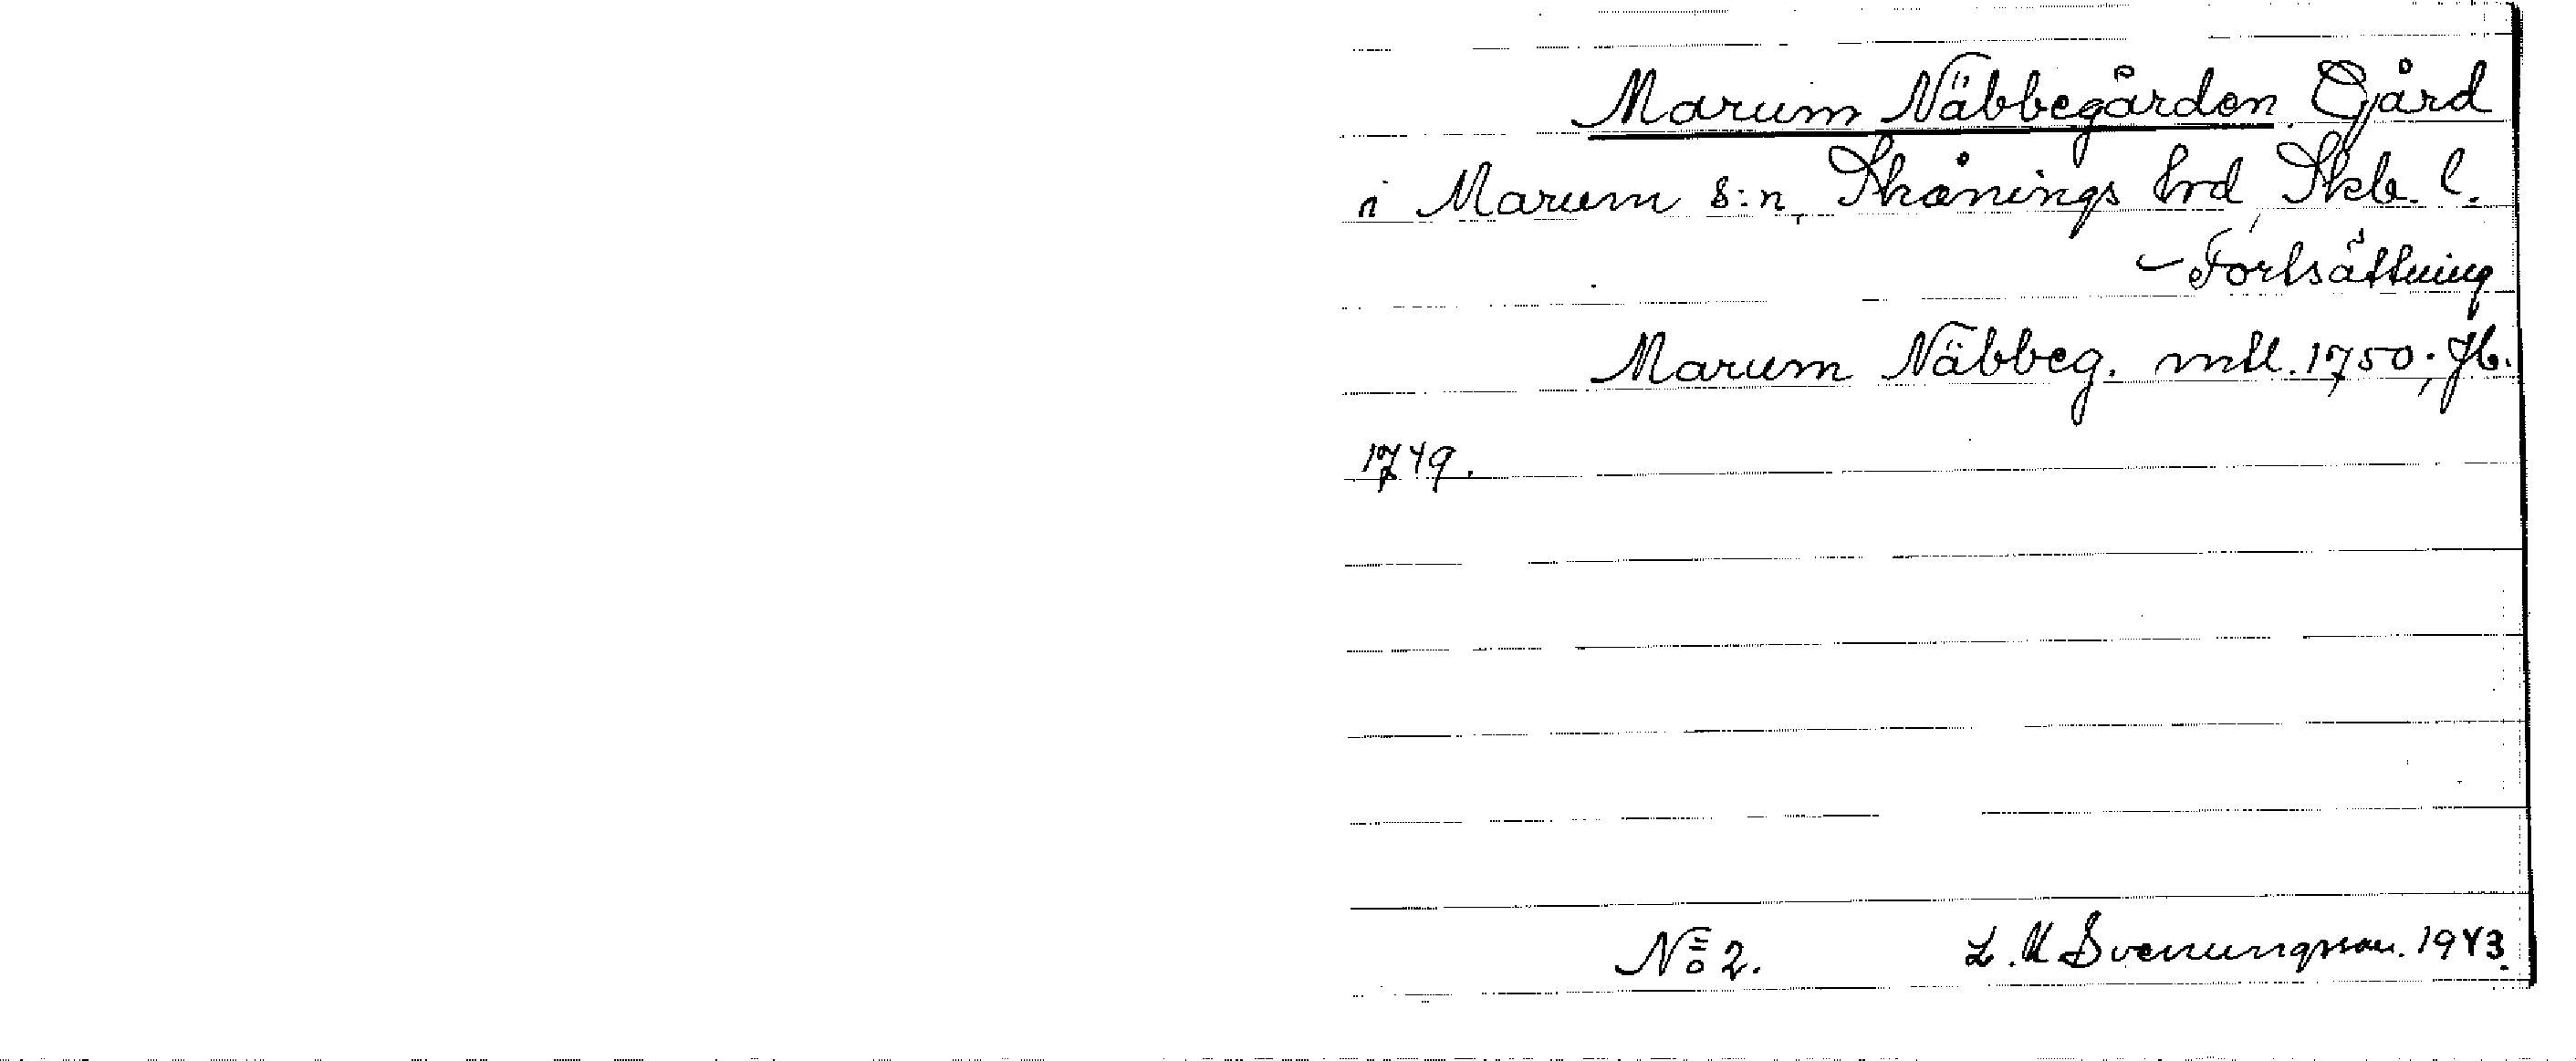 Marum Näbbegården. Gård
i Marum s:n, Skånings hrd, Skb. l.
- Fortsättning
Marum Näbbeg. mtl. 1750; Jb.
1749.
No 2. L. M Svenungsson. 1943.